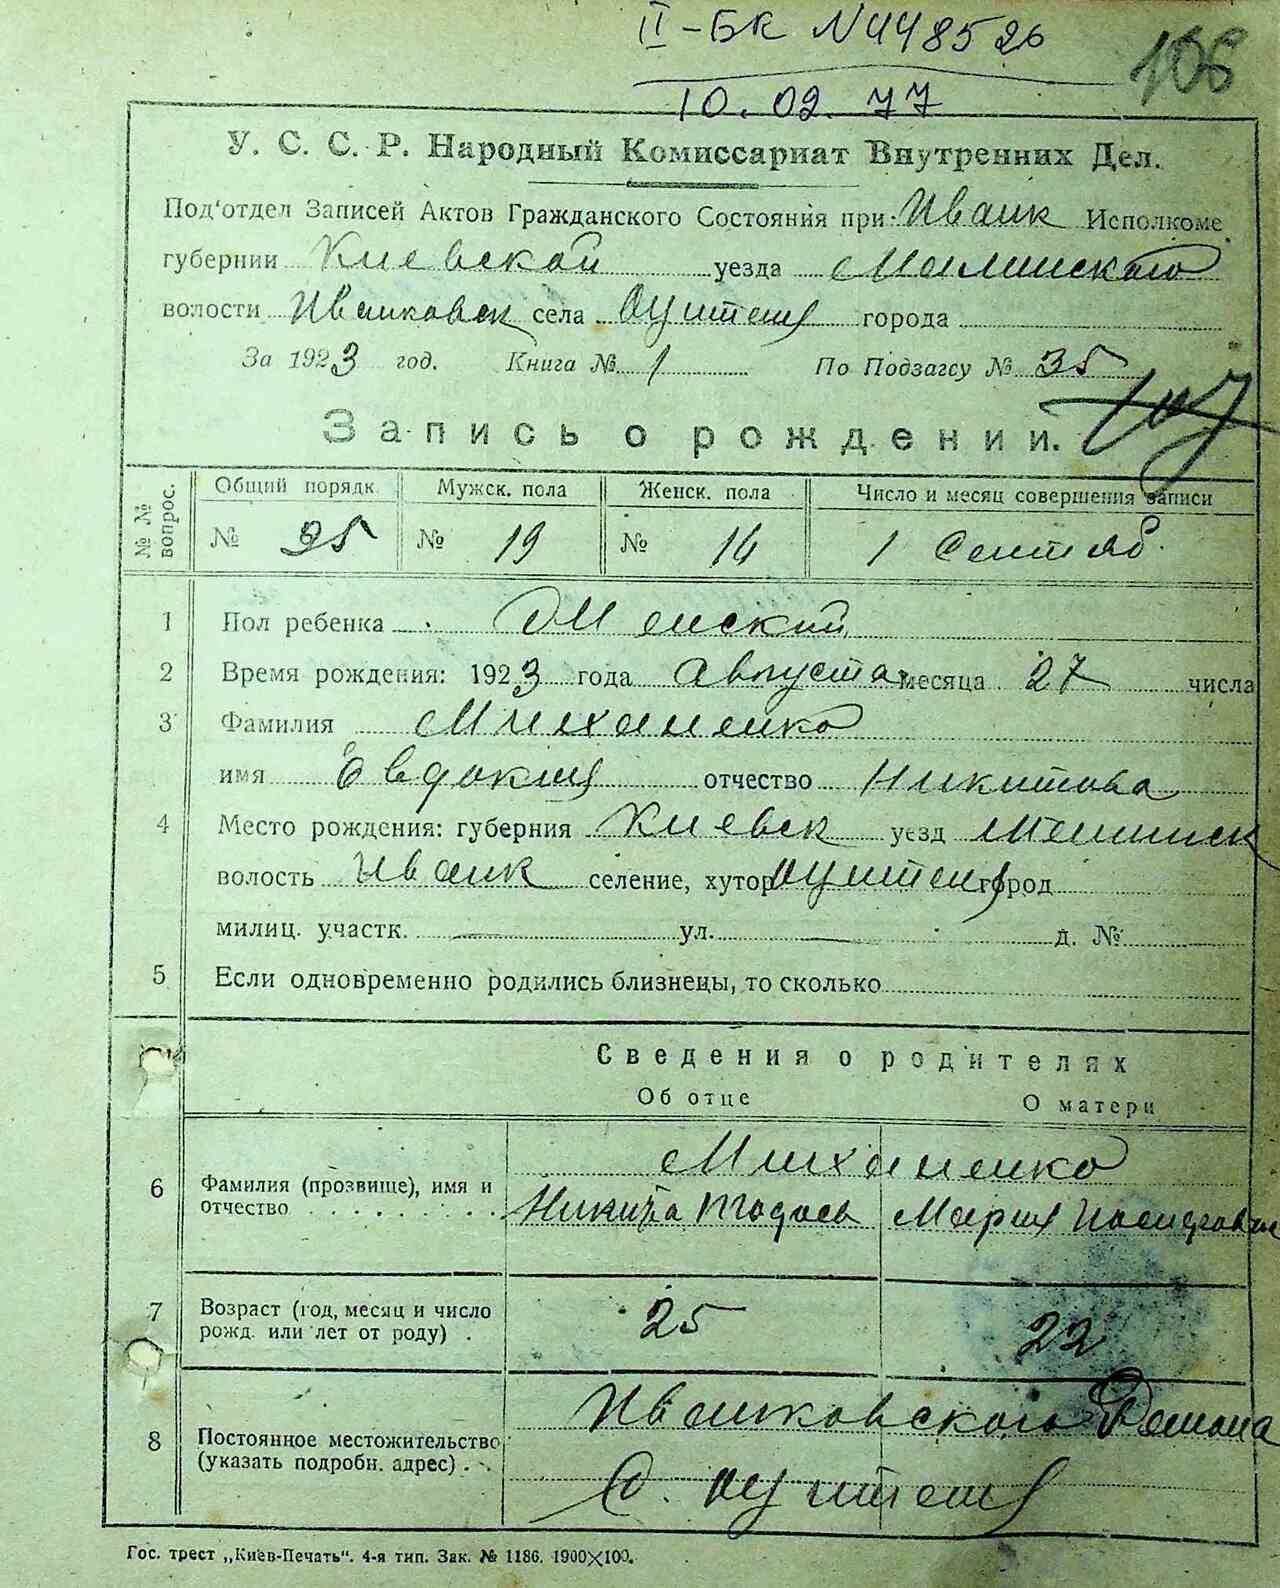 II-БК N 448526
106
10.02.77
У. С. С. Р. Народный Комиссариат Внутренних Дел.
Под'отдел Записей Актов Гражданского Состояния при Иванк Исполкоме
губернии Киевской уезда Малинского
волости Иванковск села города
За 1923 год. Книга № 1 По Подзагсу № 35
107
Запись о рождении.
№ № вопрос. Общий порядк Мужск. пола Женск. пола Число и месяц совершения записи
№ 35 № 19 № 16 1 Сентяб.
1 Пол ребенка Женский
2 Время рождения: 1923 года Августа месяца 27 числа
3 Фамилия Миханенко
имя Евдокия отчество Никитова
4 Место рождения: губерния Киевск уезд Малинск
волость Иванк селение, хутор город
милиц. участк. — ул. — д. №
5 Если одновременно родились близнецы, то сколько
Сведения о родителях
Об отце О матери
Миханенко
6 Фамилия (прозвище), имя и
отчество Никита Мария
7 Возраст (год, месяц и число
рожд. или лет от роду) . 25 22
Иванковского
8 Постоянное местожительство
(указать подробн. адрес) . С.
Гос. трест „Киев-Печать“. 4-я тип. Зак. № 1186. 1900×100.